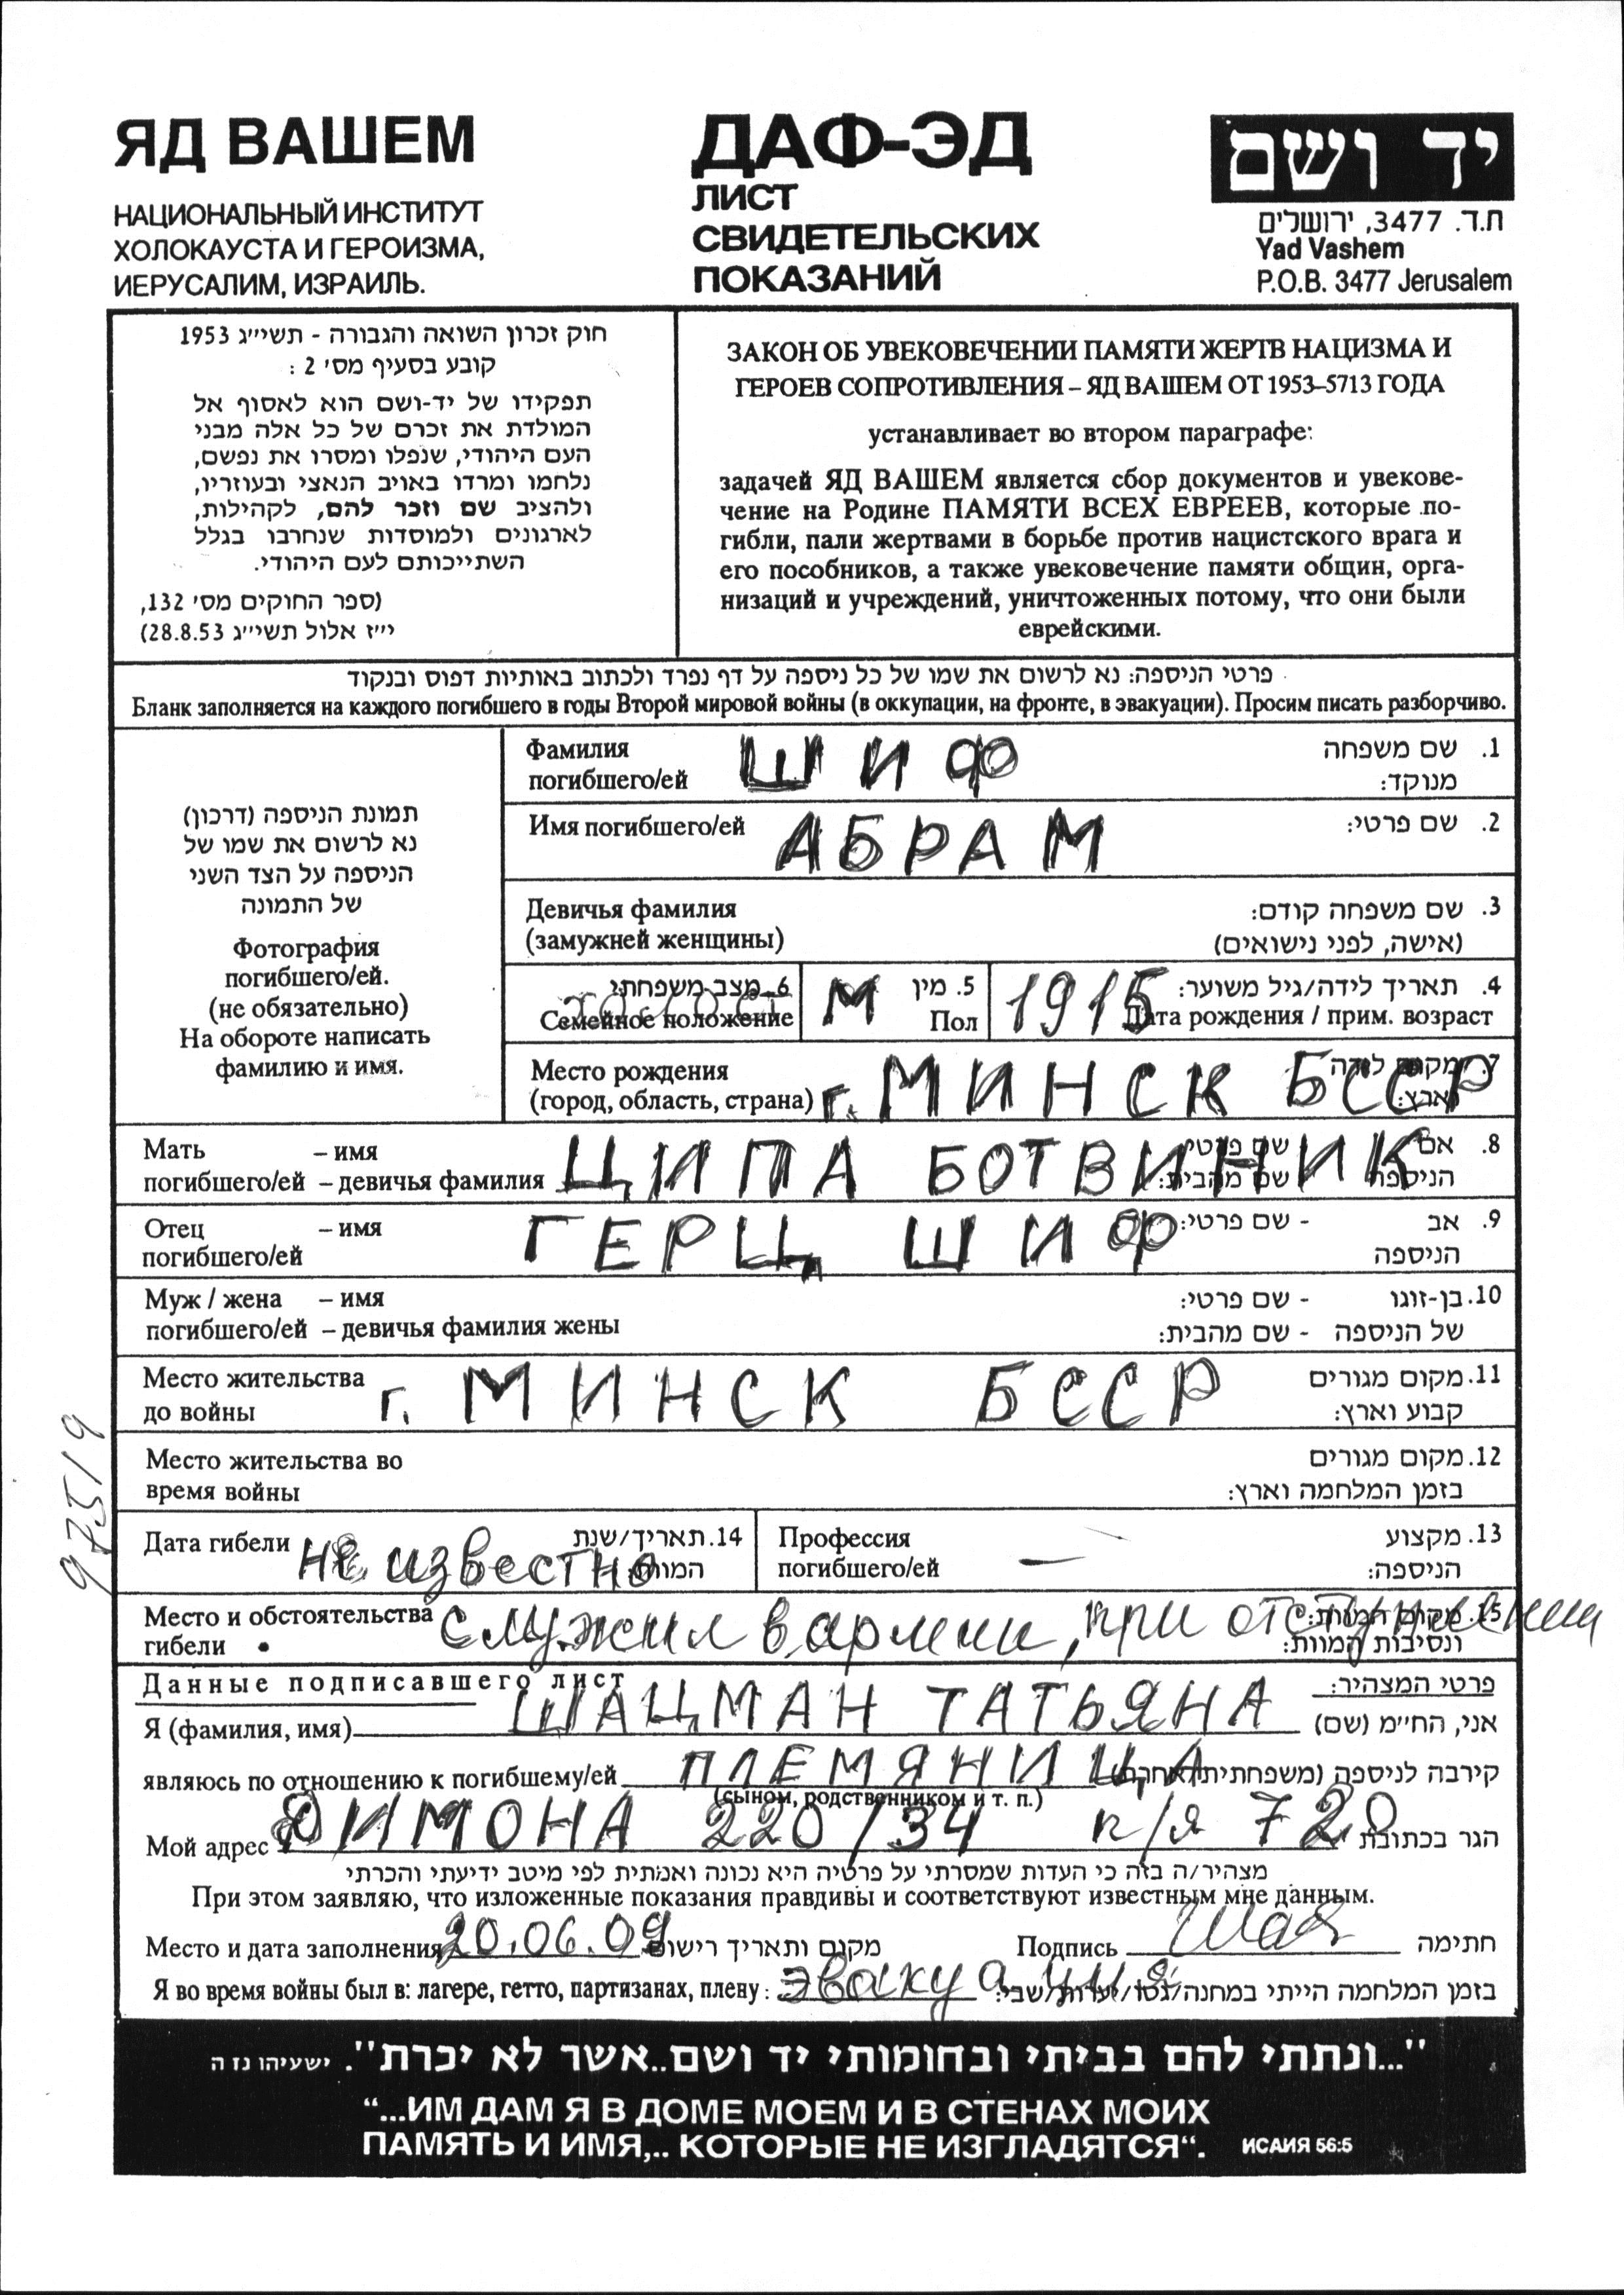 ЯД ВАШЕМ
НАЦИОНАЛЬНЫЙ ИНСТИТУТ
ХОЛОКАУСТА И ГЕРОИЗМА,
ИЕРУСАЛИМ, ИЗРАИЛЬ.
ДАФ-ЭД
ЛИСТ
СВИДЕТЕЛЬСКИХ
ПОКАЗАНИЙ
יד ושם
ת.ד. 3477, ירושלים
Yad Vashem
P.O.B. 3477 Jerusalem
חוק זכרון השואה והגבורה - תשי״ג 1953
קובע בסעיף מס׳ 2 :
תפקידו של יד-ושם הוא לאסוף אל
המולדת את זכרם של כל אלה מבני
העם היהודי, שנפלו ומסרו את נפשם,
נלחמו ומרדו באויב הנאצי ובעוזריו,
ולהציב שם וזכר להם, לקהילות,
לארגונים ולמוסדות שנחרבו בגלל
השתייכותם לעם היהודי.
(ספר החוקים מס׳ 132,
י״ז אלול תשי״ג 28.8.53)
ЗАКОН ОБ УВЕКОВЕЧЕНИИ ПАМЯТИ ЖЕРТВ НАЦИЗМА И
ГЕРОЕВ СОПРОТИВЛЕНИЯ – ЯД ВАШЕМ ОТ 1953–5713 ГОДА
устанавливает во втором параграфе:
задачей ЯД ВАШЕМ является сбор документов и увекове-
чение на Родине ПАМЯТИ ВСЕХ ЕВРЕЕВ, которые по-
гибли, пали жертвами в борьбе против нацистского врага и
его пособников, а также увековечение памяти общин, орга-
низаций и учреждений, уничтоженных потому, что они были
еврейскими.
פרטי הניספה: נא לרשום את שמו של כל ניספה על דף נפרד ולכתוב באותיות דפוס ובנקוד
Бланк заполняется на каждого погибшего в годы Второй мировой войны (в оккупации, на фронте, в эвакуации). Просим писать разборчиво.
תמונת הניספה (דרכון)
נא לרשום את שמו של
הניספה על הצד השני
של התמונה
Фотография
погибшего/ей.
(не обязательно)
На обороте написать
фамилию и имя.
Фамилия ШИФ 1. שם משפחה
погибшего/ей מנוקד:
Имя погибшего/ей АБРАМ 2. שם פרטי:
Девичья фамилия 3. שם משפחה קודם:
(замужней женщины) (אישה, לפני נישואים)
6. מצב משפחתי: М 5. מין 1915 4. תאריך לידה/גיל משוער:
Семейное положение Пол Дата рождения / прим. возраст
Место рождения 7. מקום לידה
(город, область, страна) г. МИНСК БССР וארץ:
Мать – имя ЦИПА БОТВИНИК 8. אם שם פרטי
погибшего/ей – девичья фамилия הניספה שם מהבית:
Отец – имя ГЕРЦ ШИФ 9. אב - שם פרטי:
погибшего/ей הניספה
Муж / жена – имя 10. בן-זוגו - שם פרטי:
погибшего/ей – девичья фамилия жены של הניספה - שם מהבית:
Место жительства г. МИНСК БССР 11. מקום מגורים
до войны קבוע וארץ:
Место жительства во 12. מקום מגורים
время войны בזמן המלחמה וארץ:
Дата гибели не известно 14. תאריך/שנת המוות:
Профессия 13. מקצוע
погибшего/ей — הניספה:
Место и обстоятельства служил в армии, при отступлении 15. מקום המוות:
гибели ונסיבות המוות:
97519
Данные подписавшего лист פרטי המצהיר:
Я (фамилия, имя) ШАЦМАН ТАТЬЯНА אני, החי״מ (שם)
являюсь по отношению к погибшему/ей ПЛЕМЯНИЦА קירבה לניספה (משפחתית/אחרת)
(сыном, родственником и т. п.)
Мой адрес ДИМОНА 220/34 п/я 720 הגר בכתובת
מצהיר/ה בזה כי העדות שמסרתי על פרטיה היא נכונה ואמתית לפי מיטב ידיעתי והכרתי
При этом заявляю, что изложенные показания правдивы и соответствуют известным мне данным.
Место и дата заполнения 20.06.09 מקום ותאריך רישום Подпись חתימה
Я во время войны был в: лагере, гетто, партизанах, плену: эвакуация בזמן המלחמה הייתי במחנה/גטו/יערות/שבי:
"...ונתתי להם בביתי ובחומותי יד ושם..אשר לא יכרת". ישעיהו נז ה
“...ИМ ДАМ Я В ДОМЕ МОЕМ И В СТЕНАХ МОИХ
ПАМЯТЬ И ИМЯ,.. КОТОРЫЕ НЕ ИЗГЛАДЯТСЯ“. ИСАИЯ 56:5